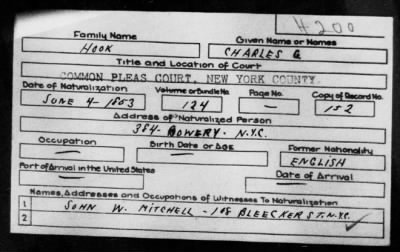 H200
Family Name Given Name or Names
HOOK CHARLES G
Title and Location of Court
COMMON PLEAS COURT, NEW YORK COUNTY.
Date of Naturalization Volume or Bundle No. Page No. Copy of Record No.
JUNE 4-1853 124 — 152
Address of Naturalized Person
384- BOWERY - N.Y.C.
Occupation Birth Date or Age Former Nationality
— — ENGLISH
Port of Arrival in the United States Date of Arrival
— —
Names, Addresses and Occupations of Witnesses To Naturalization
1 JOHN W. MITCHELL - 108 BLEECKER ST. N.Y.C.
2